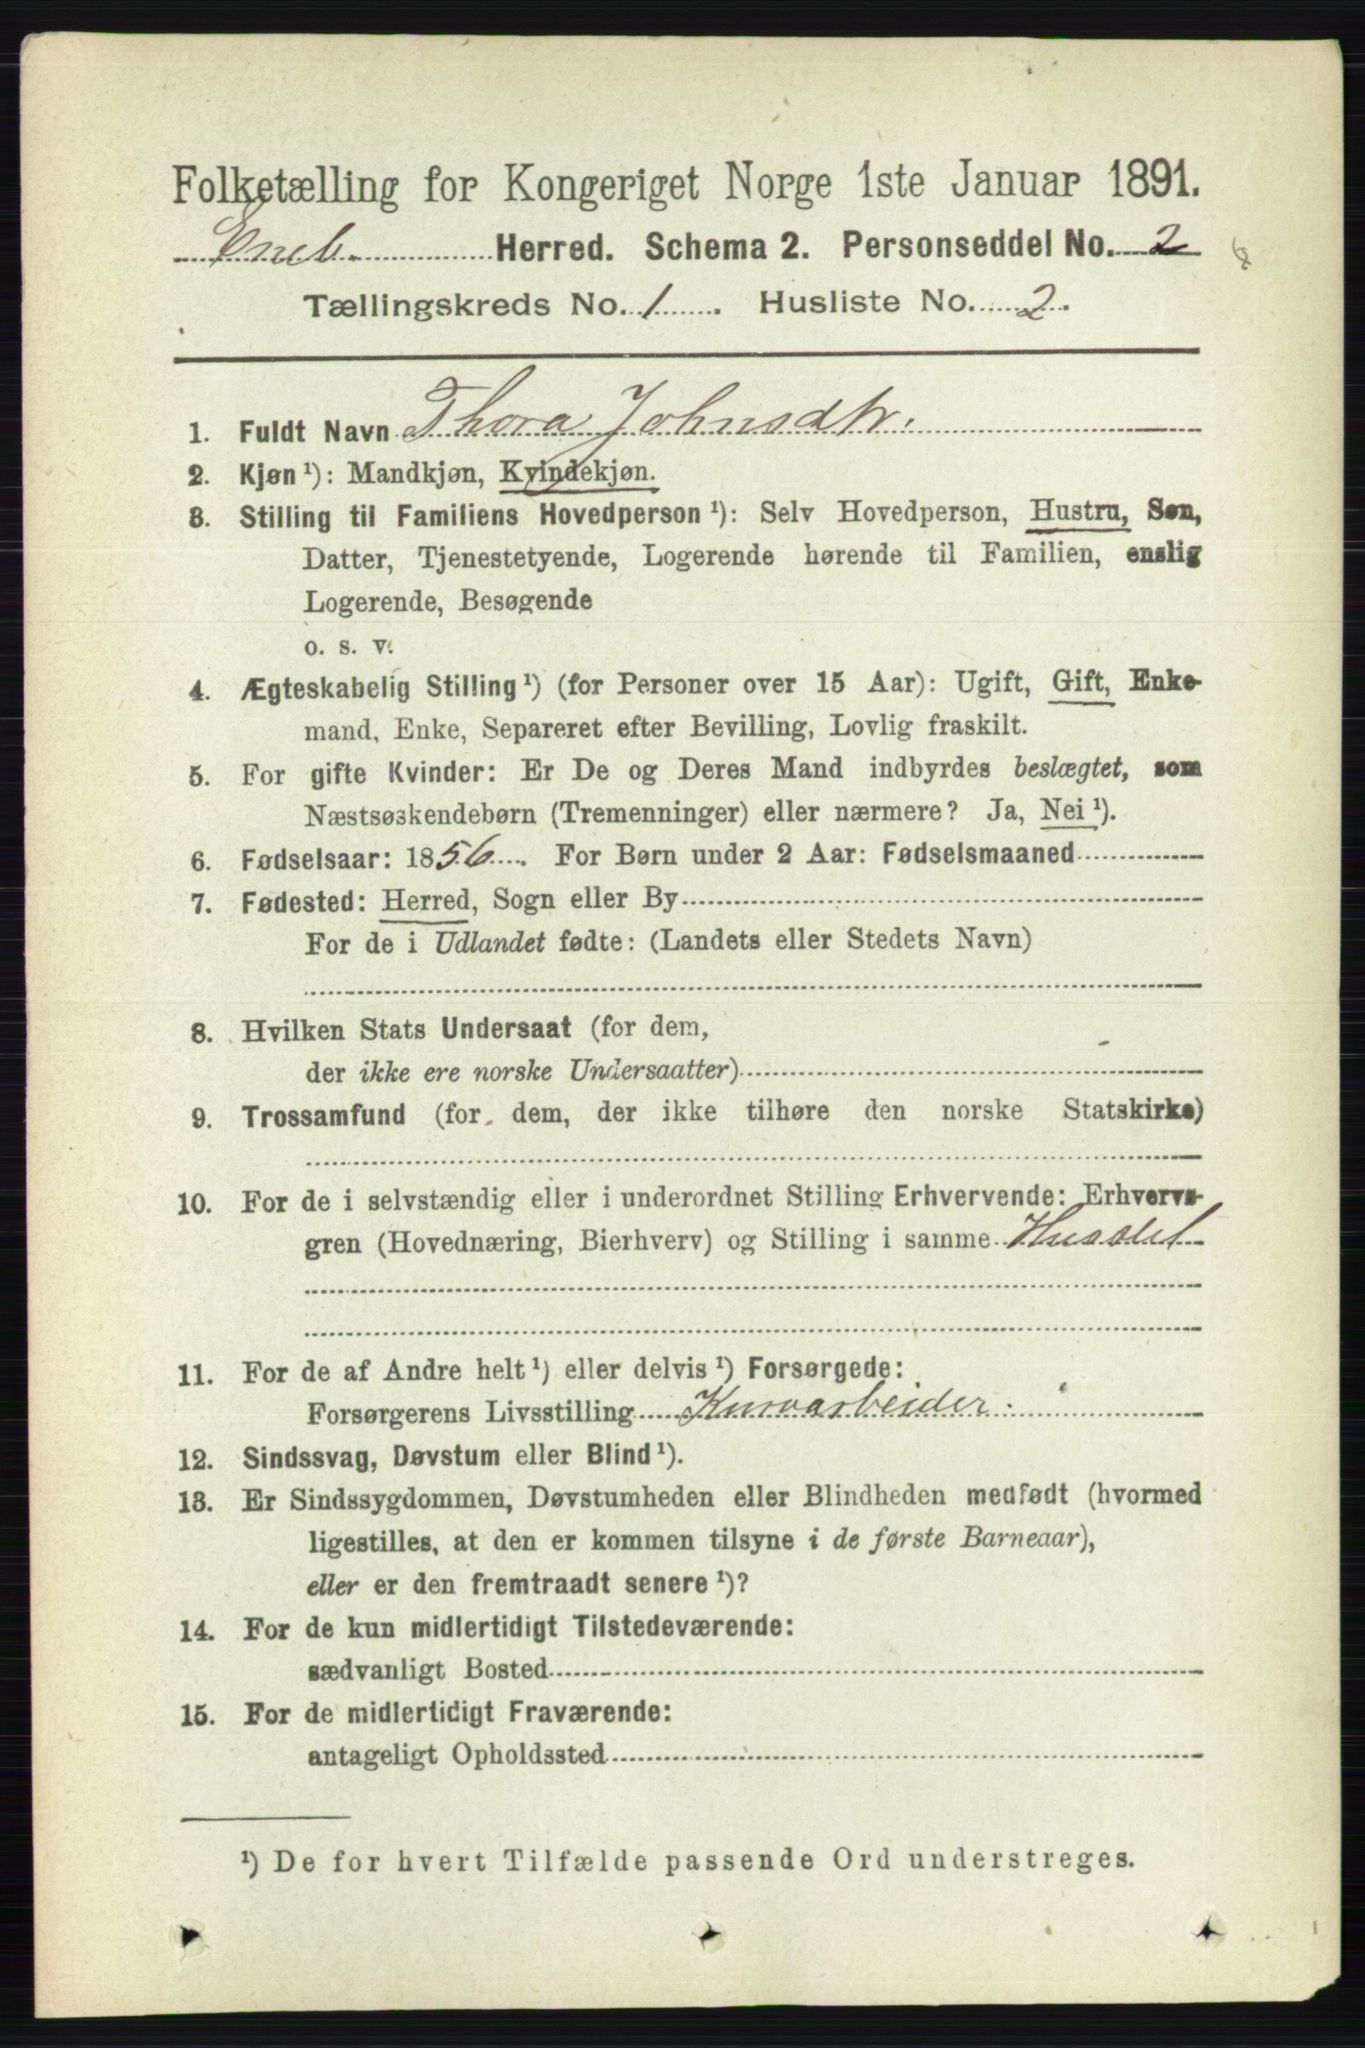 Folketælling for Kongeriget Norge 1ste Januar 1891.
Eneb. Herred. Schema 2. Personseddel No. 2
Tællingskreds No. 1. Husliste No. 2.
1. Fuldt Navn Thora Johnsdtr.
2. Kjøn ¹): Mandkjøn, Kvindekjøn.
3. Stilling til Familiens Hovedperson ¹): Selv Hovedperson, Hustru, Søn,
Datter, Tjenestetyende, Logerende hørende til Familien, enslig
Logerende, Besøgende
o. s. v.
4. Ægteskabelig Stilling ¹) (for Personer over 15 Aar): Ugift, Gift, Enke-
mand, Enke, Separeret efter Bevilling, Lovlig fraskilt.
5. For gifte Kvinder: Er De og Deres Mand indbyrdes beslægtet, som
Næstsøskendebørn (Tremenninger) eller nærmere? Ja, Nei ¹).
6. Fødselsaar: 1856. For Børn under 2 Aar: Fødselsmaaned
7. Fødested: Herred, Sogn eller By
For de i Udlandet fødte: (Landets eller Stedets Navn)
8. Hvilken Stats Undersaat (for dem,
der ikke ere norske Undersaatter)
9. Trossamfund (for dem, der ikke tilhøre den norske Statskirke)
10. For de i selvstændig eller i underordnet Stilling Erhvervende: Erhvervs-
gren (Hovednæring, Bierhverv) og Stilling i samme Husstel
11. For de af Andre helt ¹) eller delvis ¹) Forsørgede:
Forsørgerens Livsstilling Kurvarbeider.
12. Sindssvag, Døvstum eller Blind ¹).
13. Er Sindssygdommen, Døvstumheden eller Blindheden medfødt (hvormed
ligestilles, at den er kommen tilsyne i de første Barneaar),
eller er den fremtraadt senere ¹)?
14. For de kun midlertidigt Tilstedeværende:
sædvanligt Bosted
15. For de midlertidigt Fraværende:
antageligt Opholdssted
¹) De for hvert Tilfælde passende Ord understreges.